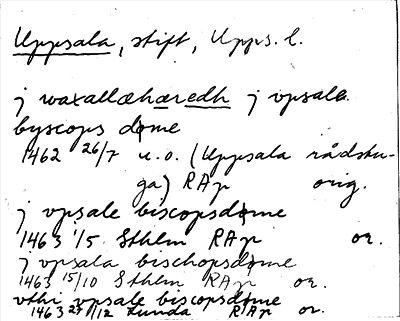 Uppsala, stift, Upps. l.
j waxallæhæredh j vpsale
byscops døme
1462 26/7 u.o. (Uppsala rådstu-
ga) RAp orig.
j vpsale biscopsdøme
1463 1/5 Sthlm RAp or.
j vpsala bischopsdøme
1463 15/10 Sthlm RAp or.
vthi vpsale biscopsdøme
1463 27/12 Lunda RAp or.